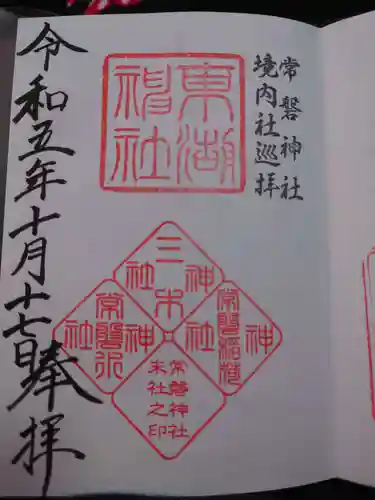 常磐神社
境内社巡拝
東湖神社
三木神社
常磐稲荷神社
常磐水神社
常磐神社
末社之印
令和五年十月十七日奉拝